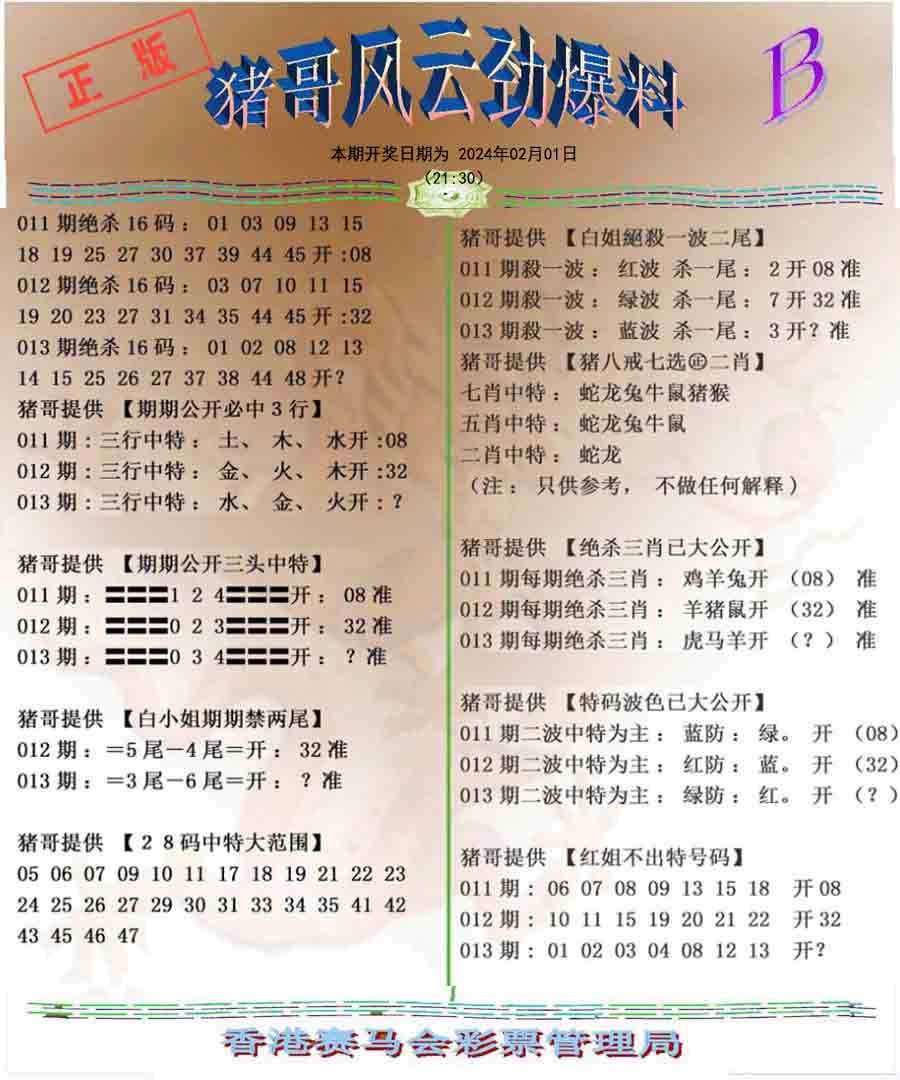 正版
猪哥风云劲爆料
B
本期开奖日期为 2024年02月01日
(21:30)
011期绝杀16码： 01 03 09 13 15
18 19 25 27 30 37 39 44 45开:08
012期绝杀16码： 03 07 10 11 15
19 20 23 27 31 34 35 44 45开:32
013期绝杀16码： 01 02 08 12 13
14 15 25 26 27 37 38 44 48开?
猪哥提供 【期期公开必中3行】
011期:三行中特： 土、 木、 水开:08
012期:三行中特： 金、 火、 木开:32
013期:三行中特： 水、 金、 火开:?
猪哥提供 【期期公开三头中特】
011期:〓〓〓1 2 4〓〓〓开: 08准
012期:〓〓〓0 2 3〓〓〓开: 32准
013期:〓〓〓0 3 4〓〓〓开: ?准
猪哥提供 【白小姐期期禁两尾】
012期:＝5尾－4尾＝开: 32准
013期:＝3尾－6尾＝开: ?准
猪哥提供 【28码中特大范围】
05 06 07 09 10 11 17 18 19 21 22 23
24 25 26 27 29 30 31 33 34 35 41 42
43 45 46 47
猪哥提供 【白姐絕殺一波二尾】
011期殺一波: 红波 杀一尾: 2开08准
012期殺一波: 绿波 杀一尾: 7开32准
013期殺一波: 蓝波 杀一尾: 3开?准
猪哥提供 【猪八戒七选㊣二肖】
七肖中特: 蛇龙兔牛鼠猪猴
五肖中特: 蛇龙兔牛鼠
二肖中特: 蛇龙
(注: 只供参考, 不做任何解释)
猪哥提供 【绝杀三肖已大公开】
011期每期绝杀三肖: 鸡羊兔开 (08) 准
012期每期绝杀三肖: 羊猪鼠开 (32) 准
013期每期绝杀三肖: 虎马羊开 (?) 准
猪哥提供 【特码波色已大公开】
011期二波中特为主: 蓝防: 绿。 开 (08)
012期二波中特为主: 红防: 蓝。 开 (32)
013期二波中特为主: 绿防: 红。 开 (?)
猪哥提供 【红姐不出特号码】
011期: 06 07 08 09 13 15 18 开08
012期: 10 11 15 19 20 21 22 开32
013期: 01 02 03 04 08 12 13 开?
香港赛马会彩票管理局